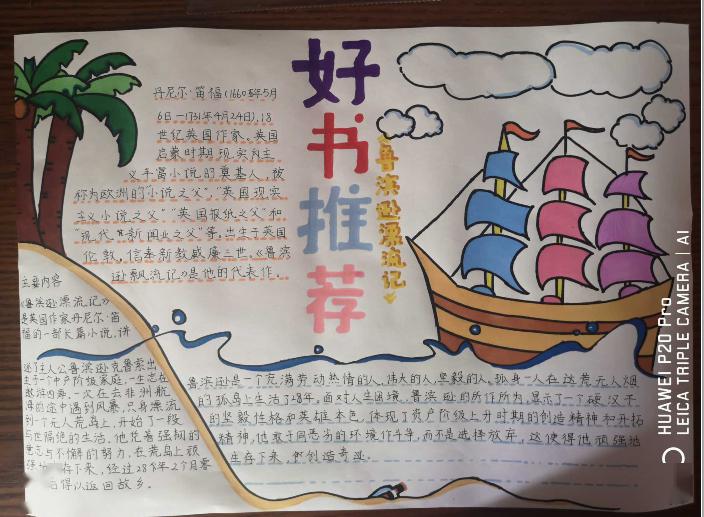 好书推荐
鲁滨逊漂流记
丹尼尔·笛福(1660年5月
6日-1731年4月24日),18
世纪英国作家。英国
启蒙时期现实主
义丰富小说的奠基人,被
称为欧洲的"小说之父""英国现实
主义小说之父""英国报纸之父"和
"现代新闻业之父"等,出生于英国
伦敦,信奉新教威廉三世。《鲁滨
逊飘流记》是他的代表作。
主要内容
《鲁滨逊漂流记》
是英国作家丹尼尔·笛
福的一部长篇小说,讲
述了主人公鲁滨逊克鲁索出
生于一个中产阶级家庭,一生志在
遨游四海,一次在去非洲航
海的途中遇到风暴,只身漂流
到一个无人荒岛上,开始了一段
与世隔绝的生活,他凭着强韧的
意志与不懈的努力,在荒岛上顽
强 存下来,经过28年2个月零
后得以返回故乡。
鲁滨逊是一个充满劳动热情的人,伟大的人,坚毅的人。孤身一人在这荒无人烟
的孤岛上生活了28年,面对人生困境,鲁滨逊的所作所为,显示了一个硬汉子
的坚毅性格和英雄本色,体现了资产阶级上升时期的创造精神和开拓
精神,他敢于同恶劣的环境作斗争,而不是选择放弃,这使得他顽强地
生存下来,并创造奇迹。
HUAWEI P20 Pro
LEICA TRIPLE CAMERA | AI